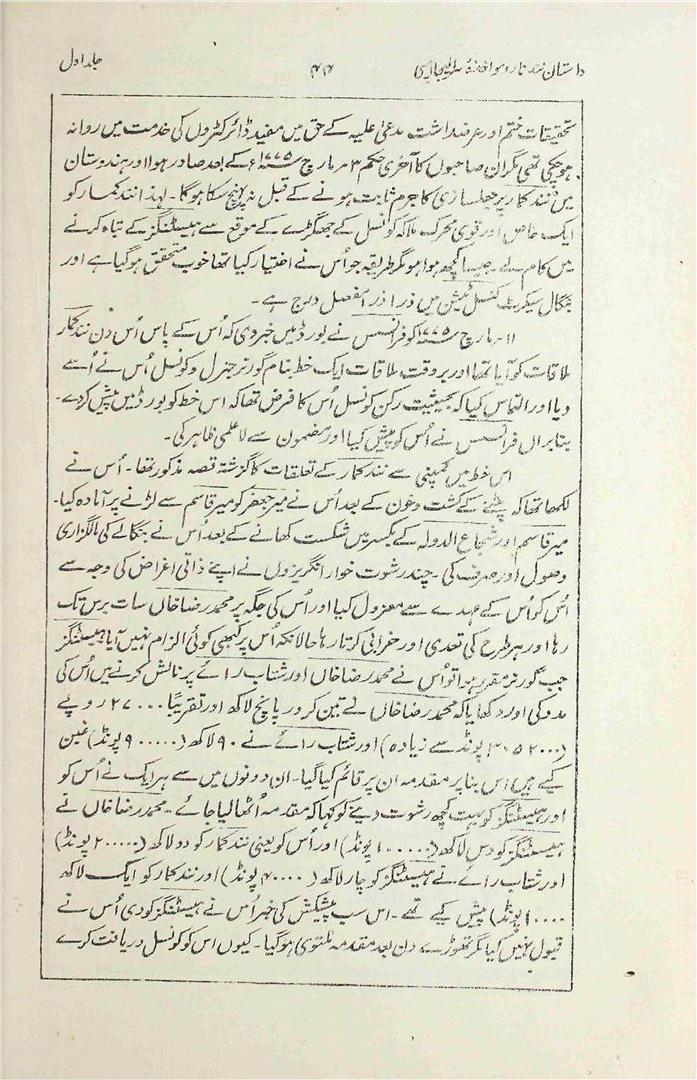 داستان نند کمار و مواخذہ سر الیجا امپی ۴۴ جلد اول
تحقیقات ختم اور عرضداشت مدعیٰ علیہ کے حق میں مفید ڈائرکٹروں کی خدمت میں روانہ
ہوچکی تھی مگر ان صاحبوں کا آخری حکم ۳ مارچ ۱۷۷۵ء کے بعد صادر ہوا اور ہندوستان
میں نند کمار پر جعلسازی کا جرم ثابت ہونے کے قبل نہ پہنچ سکا ہوگا۔ لہذا نند کمار کو
ایک خاص اور قوی محرک ملا کہ کونسل کے جھگڑے کے موقع سے ہیسٹنگز کے تباہ کرنے
میں کام لے۔ جیسا کچھ ہوا ہو مگر طریقہ جو اُس نے اختیار کیا تھا خوب متحقق ہوگیا ہے اور
بنگال سیکریٹ کنسلٹیشن میں ذرا ذرا مفصل درج ہے۔
۱۱ مارچ ۱۷۷۵ء کو فرانسس نے بورڈ میں خبر دی کہ اُس کے پاس اُس دن نند کمار
ملاقات کو آیا تھا اور بروقت ملاقات ایک خط بنام گورنر جنرل و کونسل اُس نے اُسے
دیا اور التماس کیا کہ بحیثیت رکن کونسل اُس کا فرض تھا کہ اس خط کو بورڈ میں پیش کردے۔
بنا براں فرانسس نے اُس کو پیش کیا اور مضمون سے لاعلمی ظاہر کی۔
اس خط میں کمپنی سے نند کمار کے تعلقات کا گزشتہ قصہ مذکور تھا۔ اُس نے
لکھا تھا کہ پٹنے کے کشت و خون کے بعد اُس نے میر جعفر کو میر قاسم سے لڑنے پر آمادہ کیا۔
میر قاسم اور شجاع الدولہ کے بکسر میں شکست کھانے کے بعد اُس نے بنگالے کی مالگزاری
وصول اور صرف کی۔ چند رشوت خوار انگریزوں نے اپنے ذاتی اغراض کی وجہ سے
اُس کو اُس کے عہدے سے معزول کیا اور اُس کی جگہ پر محمد رضا خاں سات برس تک
رہا اور ہر طرح کی تعدی اور خرابی کرتا رہا حالانکہ اُس پر کبھی کوئی الزام نہیں آیا ہیسٹنگز
جب گورنر مقرر ہوا تو اُس نے محمد رضا خاں اور شتاب رائے پر نالش کرنے میں اُس کی
مدد کی اور دکھایا کہ محمد رضا خاں نے تین کرور پانچ لاکھ اور تقریباً ۲۷۰۰۰ روپے
(۳۰۵۲۰۰۰ پونڈ سے زیادہ) اور شتاب رائے نے ۹۰ لاکھ (۹۰۰۰۰۰ پونڈ) غبن
کیے ہیں اس بنا پر مقدمہ ان پر قائم کیا گیا۔ ان دونوں میں سے ہر ایک نے اُس کو
اور ہیسٹنگز کو بہت کچھ رشوت دینے کو کہا کہ مقدمہ اُٹھا لیا جائے۔ محمد رضا خاں نے
ہیسٹنگز کو دس لاکھ (۱۰۰۰۰۰ پونڈ) اور اُس کو یعنی نند کمار کو دو لاکھ (۲۰۰۰۰ پونڈ)
اور شتاب رائے نے ہیسٹنگز کو چار لاکھ (۴۰۰۰۰ پونڈ) اور نند کمار کو ایک لاکھ
۱۰۰۰۰ پونڈ) پیش کیے تھے۔ اس سب پیشکش کی خبر اُس نے ہیسٹنگز کو دی اُس نے
قبول نہیں کیا مگر تھوڑے دن بعد مقدمہ ملتوی ہوگیا۔ کیوں اس کو کونسل دریافت کرے